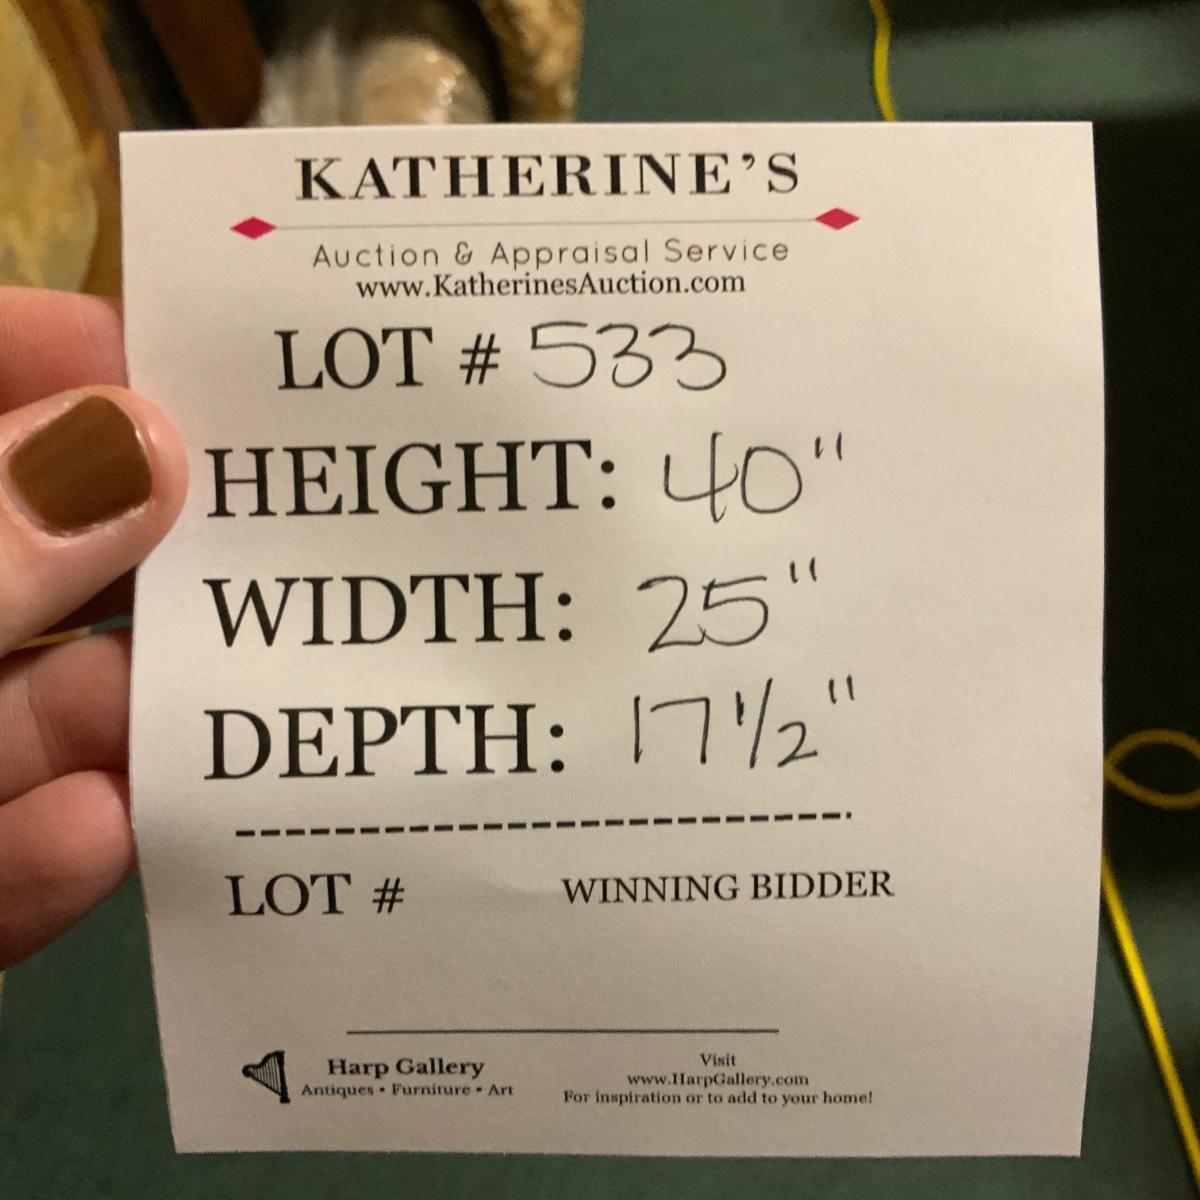 KATHERINE'S
Auction & Appraisal Service
www.KatherinesAuction.com
LOT # 533
HEIGHT: 40"
WIDTH: 25"
DEPTH: 17 1/2"
LOT # WINNING BIDDER
Harp Gallery
Antiques • Furniture • Art
Visit
www.HarpGallery.com
For inspiration or to add to your home!